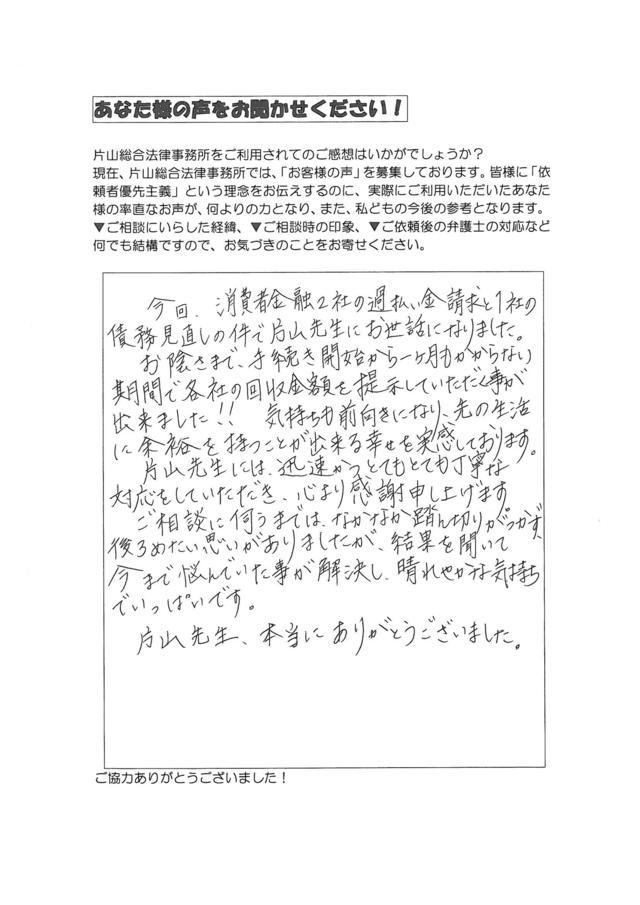 あなた様の声をお聞かせください！
片山総合法律事務所をご利用されてのご感想はいかがでしょうか？
現在、片山総合法律事務所では、「お客様の声」を募集しております。皆様に「依
頼者優先主義」という理念をお伝えするのに、実際にご利用いただいたあなた
様の率直なお声が、何よりの力となり、また、私どもの今後の参考となります。
▼ご相談にいらした経緯、▼ご相談時の印象、▼ご依頼後の弁護士の対応など
何でも結構ですので、お気づきのことをお寄せください。
今回、消費者金融2社の過払い金請求と1社の
債務見直しの件で片山先生にお世話になりました。
お陰さまで、手続き開始から一ヶ月もかからない
期間で各社の回収金額を提示していただく事が
出来ました!! 気持ちも前向きになり、先の生活
に余裕を持つことが出来る幸せを実感しております。
片山先生には、迅速かつとてもとても丁寧な
対応をしていただき、心より感謝申し上げます
ご相談に伺うまでは、なかなか踏ん切りがつかず、
後ろめたい思いがありましたが、結果を聞いて
今まで悩んでいた事が解決し、晴れやかな気持ち
でいっぱいです。
片山先生、本当にありがとうございました。
ご協力ありがとうございました！